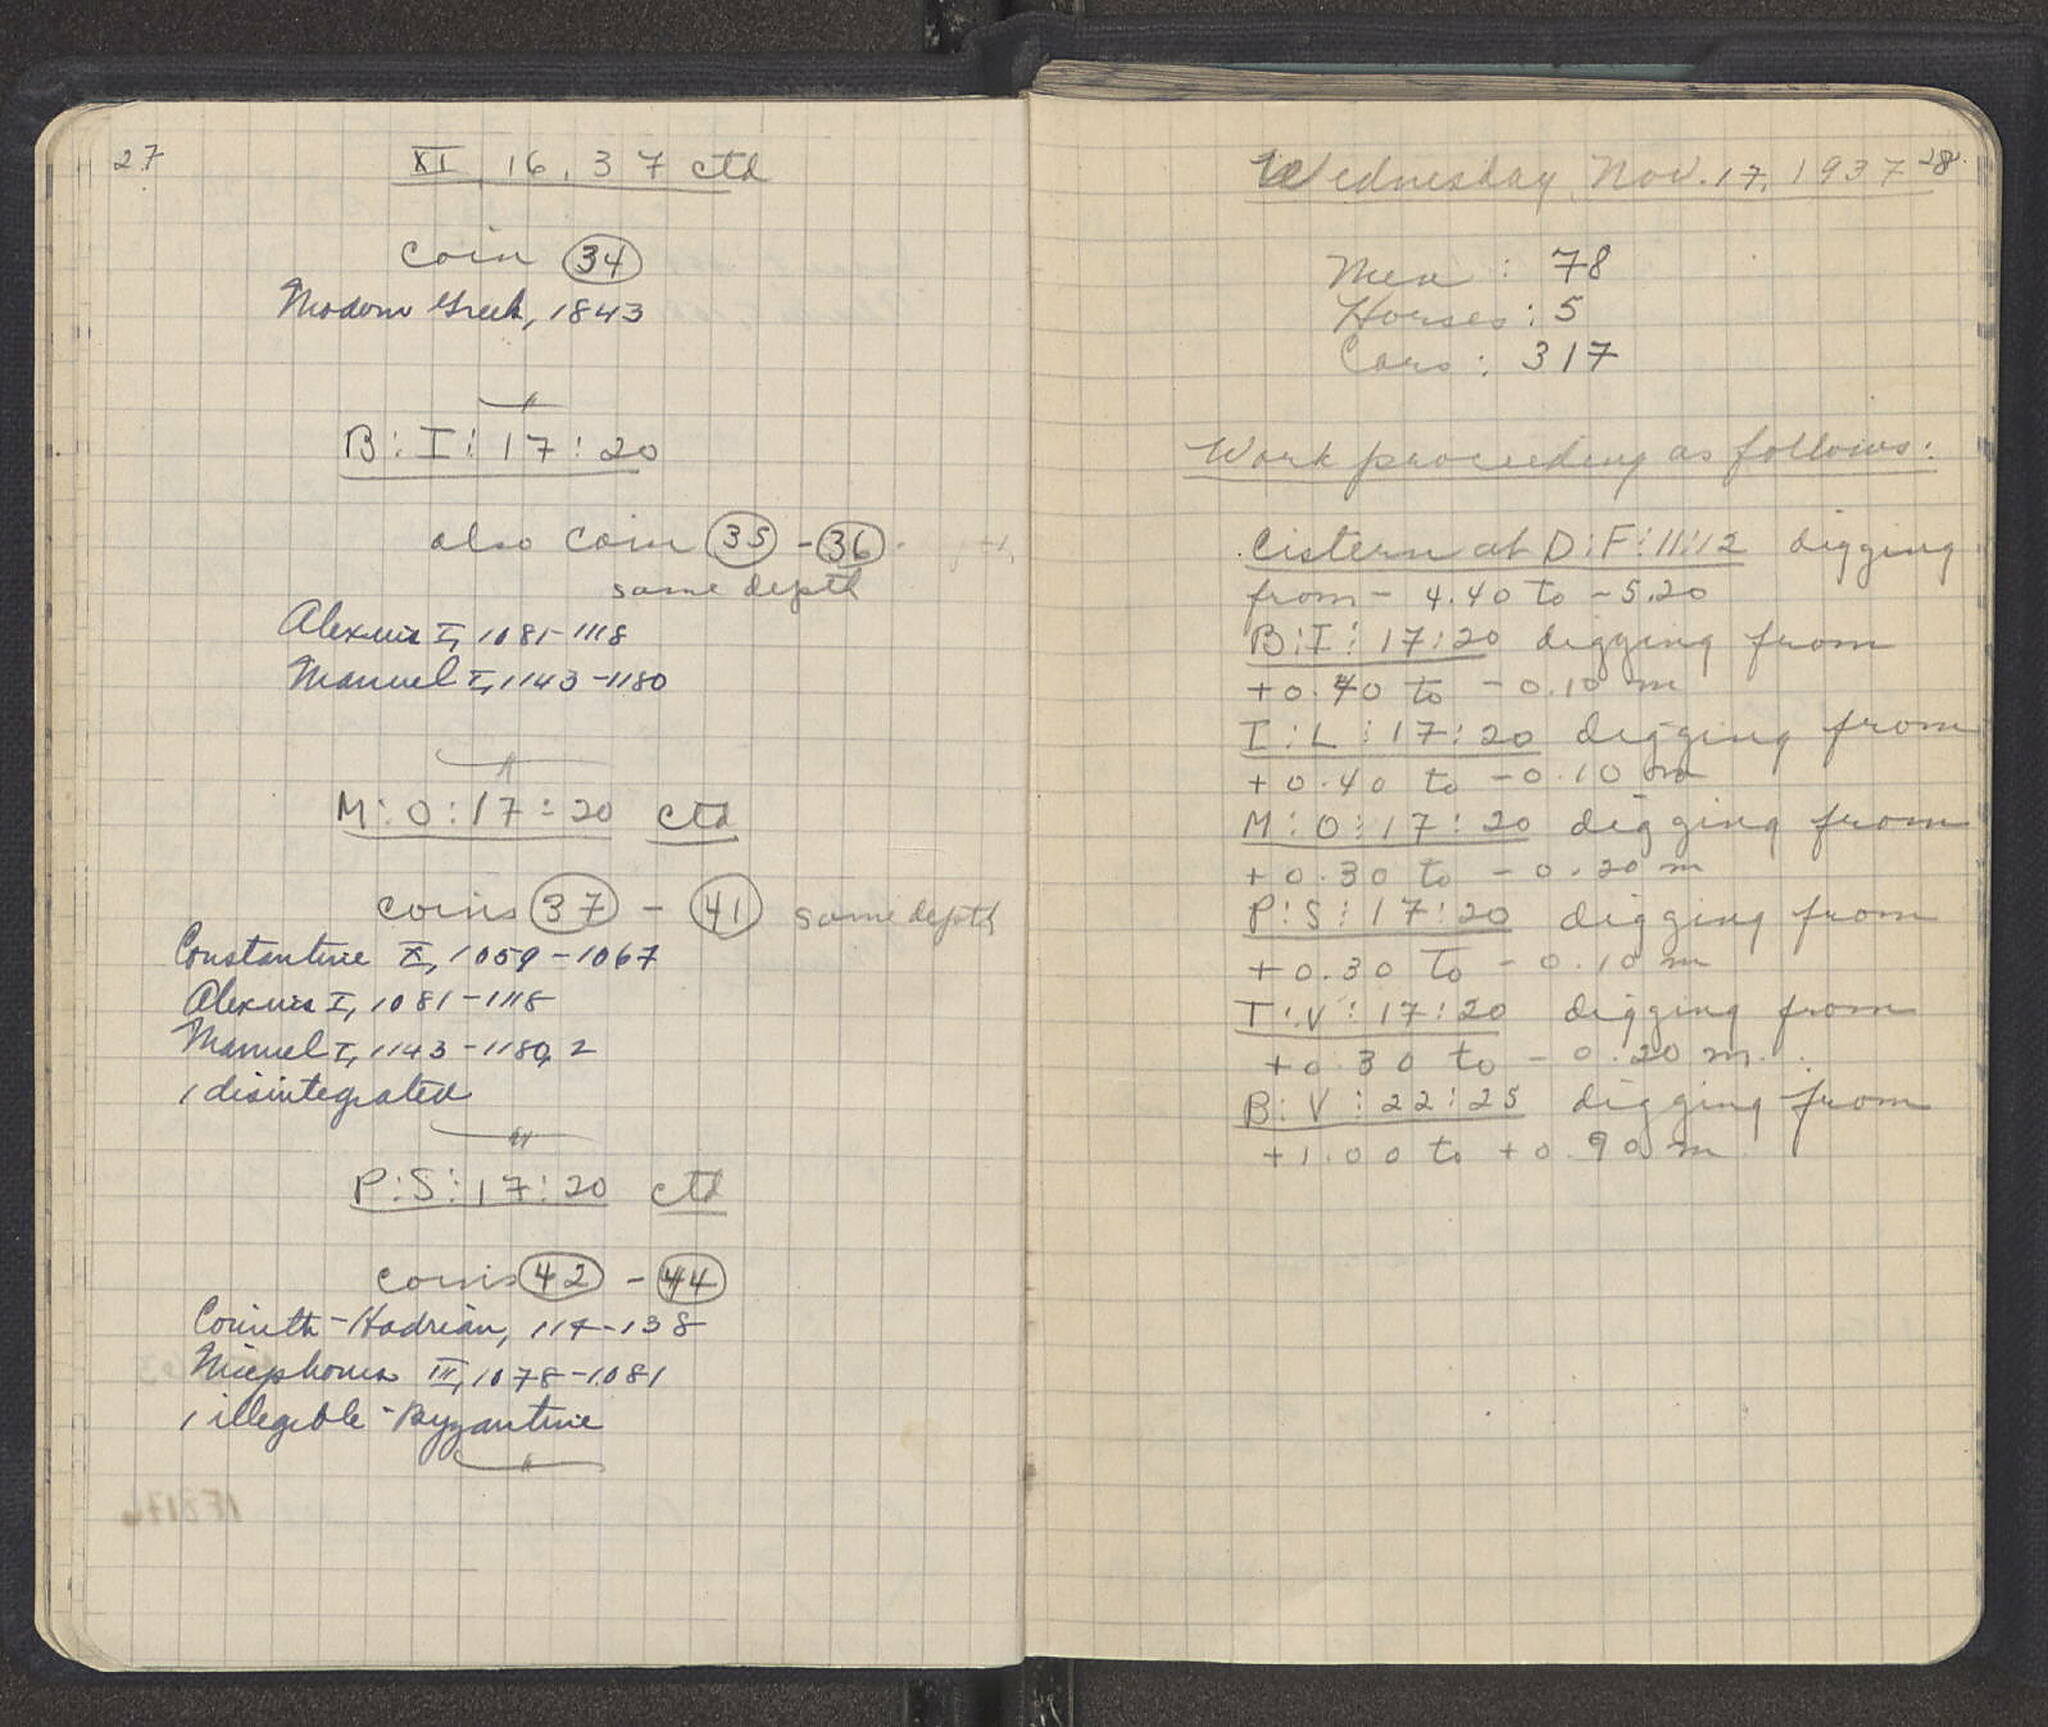 27
XI, 16, 37 ctd
coin 34
Modern Greek, 1843
B:I:17:20
also coin 35 - 36
same depth
Alexius I, 1081-1118
Manuel I, 1143-1180
M:O:17:20 ctd
coins 37 - 41 same depth
Constantine X, 1059-1067
Alexius I, 1081-1118
Manuel I, 1143-1180, 2
1 disintegrated
P:S:17:20 ctd
coins 42 - 44
Corinth - Hadrian, 117-138
Nicephorus III, 1078-1081
1 illegible - Byzantine
Wednesday, Nov. 17, 1937 28
Men : 78
Horses : 5
Cars : 317
Work proceeding as follows:
Cistern at D:F:11:12 digging
from - 4.40 to - 5.20
B:I:17:20 digging from
+0.40 to -0.10 m
I:L:17:20 digging from
+0.40 to -0.10 m
M:O:17:20 digging from
+0.30 to -0.20 m
P:S:17:20 digging from
+0.30 to -0.10 m
T:V:17:20 digging from
+0.30 to -0.20 m.
B:V:22:25 digging from
+1.00 to +0.90 m